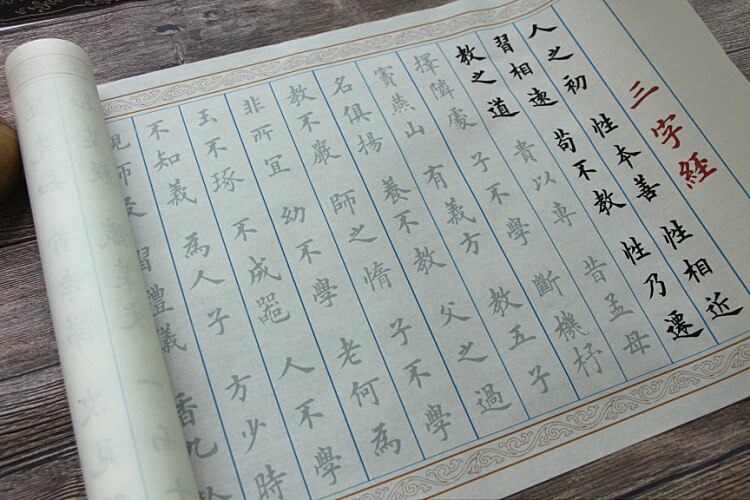 三字經
人之初 性本善 性相近
習相遠 苟不教 性乃遷
教之道 貴以專 昔孟母
擇隣處 子不學 斷機杼
竇燕山 有義方 教五子
名俱揚 養不教 父之過
教不嚴 師之惰 子不學
非所宜 幼不學 老何為
玉不琢 不成器 人不學
不知義 為人子 方少時
師 習禮 香九